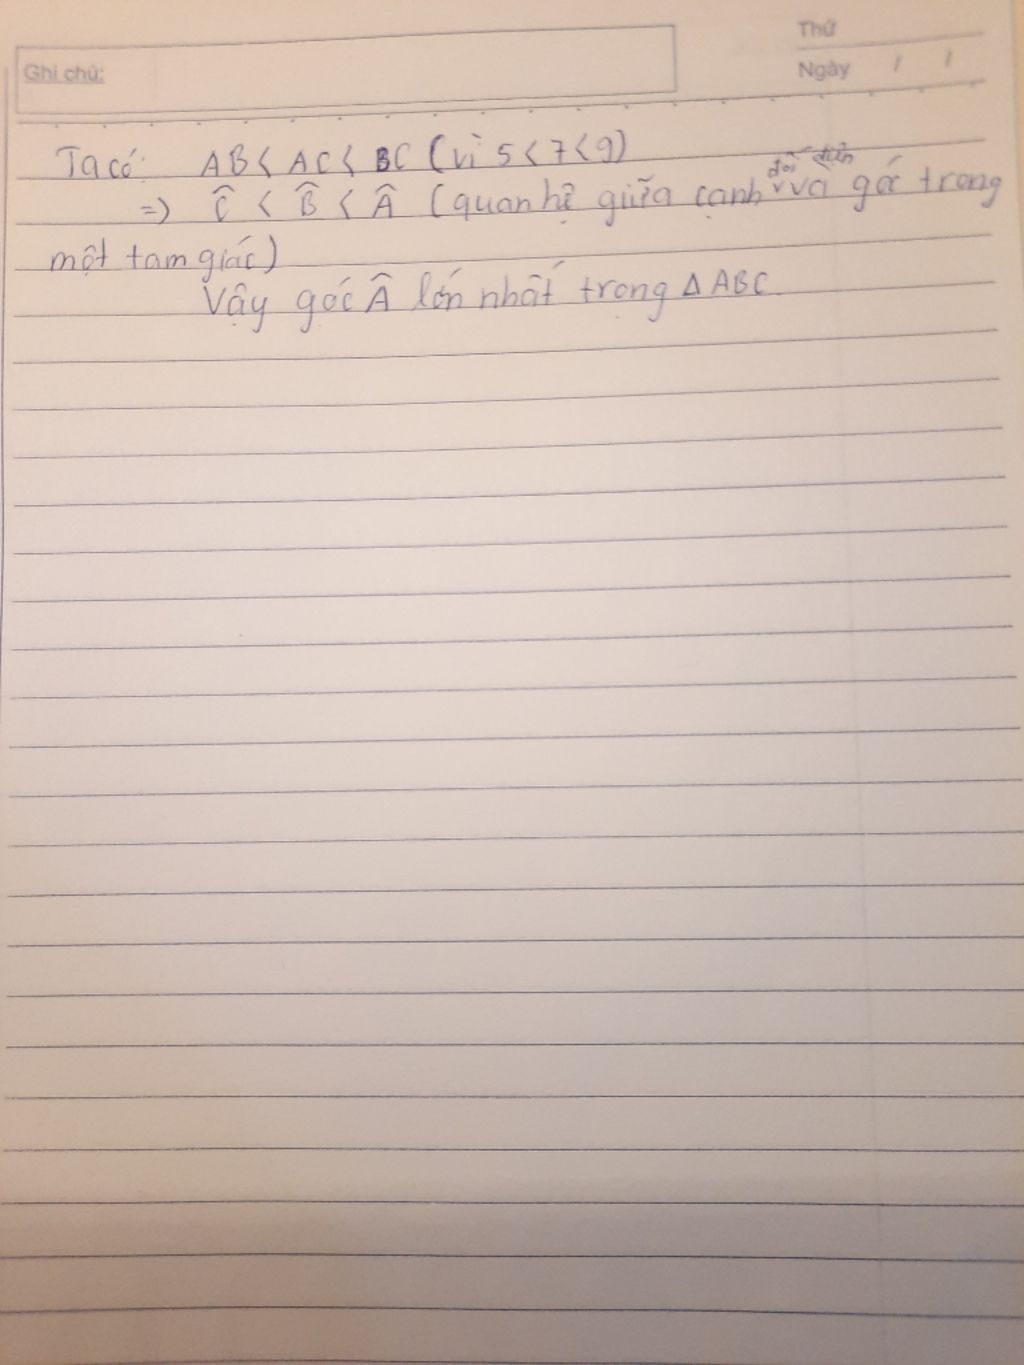 Thứ
Ghi chú:
Ngày / /
Ta có: AB < AC < BC (vì 5 < 7 < 9)
đối diện
=> Ĉ < B̂ < Â (quan hệ giữa cạnh và góc trong
một tam giác)
Vậy góc Â lớn nhất trong Δ ABC